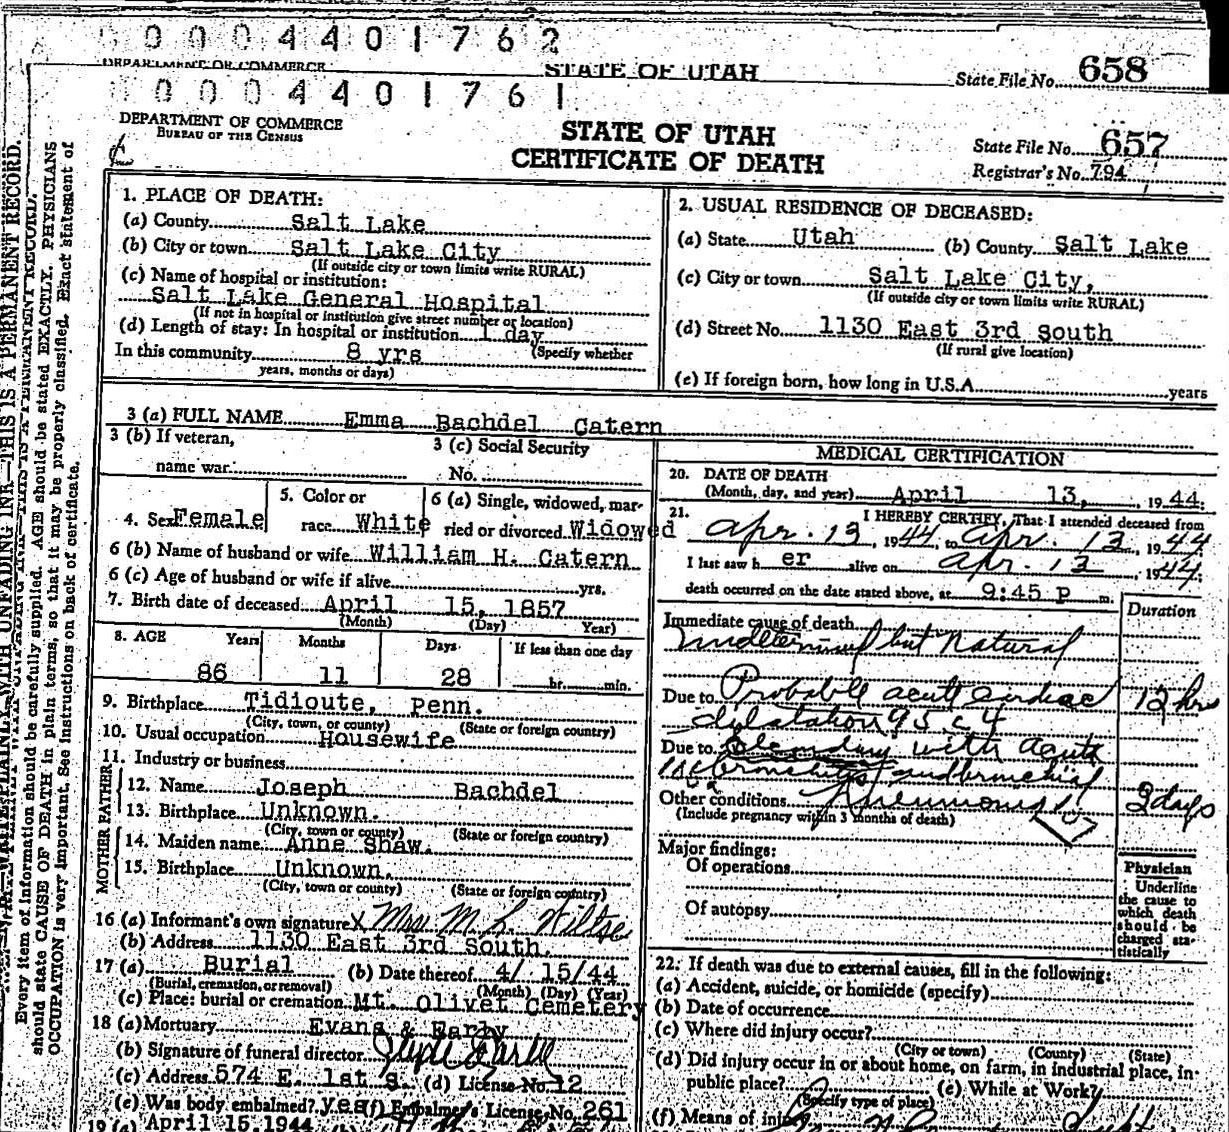 0004401762
DEPARTMENT OF COMMERCE STATE OF UTAH State File No. 658
0004401761
DEPARTMENT OF COMMERCE
BUREAU OF THE CENSUS
STATE OF UTAH
CERTIFICATE OF DEATH
State File No. 657
Registrar's No. 794
WRITE PLAINLY WITH UNFADING INK—THIS IS A PERMANENT RECORD.
Every item of information should be carefully supplied. AGE should be stated EXACTLY. PHYSICIANS
should state CAUSE OF DEATH in plain terms, so that it may be properly classified. Exact statement of
OCCUPATION is very important. See instructions on back of certificate.
1. PLACE OF DEATH:
(a) County Salt Lake
(b) City or town Salt Lake City
(If outside city or town limits write RURAL)
(c) Name of hospital or institution:
Salt Lake General Hospital
(If not in hospital or institution give street number or location)
(d) Length of stay: In hospital or institution 1 day
(Specify whether
In this community 8 yrs
years, months or days)
2. USUAL RESIDENCE OF DECEASED:
(a) State Utah (b) County Salt Lake
(c) City or town Salt Lake City,
(If outside city or town limits write RURAL)
(d) Street No. 1130 East 3rd South
(If rural give location)
(e) If foreign born, how long in U.S.A. years
3 (a) FULL NAME Emma Bachdel Catern
3 (b) If veteran,
name war
3 (c) Social Security
No.
4. Sex Female
5. Color or
race White
6 (a) Single, widowed, mar-
ried or divorced Widowed
6 (b) Name of husband or wife William H. Catern
6 (c) Age of husband or wife if alive yrs.
7. Birth date of deceased April 15, 1857
(Month) (Day) Year)
8. AGE Years Months Days If less than one day
86 11 28 hr. min.
9. Birthplace Tidioute, Penn.
(City, town, or county) (State or foreign country)
10. Usual occupation Housewife
11. Industry or business
FATHER
12. Name Joseph Bachdel
13. Birthplace Unknown.
(City, town or county) (State or foreign country)
MOTHER
14. Maiden name Anne Shaw.
15. Birthplace Unknown.
(City, town or county) (State or foreign country)
16 (a) Informant's own signature X Mrs M. L. Wiltse
(b) Address 1130 East 3rd South.
17 (a) Burial (b) Date thereof 4/ 15/44
(Burial, cremation, or removal) (Month) (Day) (Year)
(c) Place: burial or cremation Mt. Olivet Cemetery
18 (a) Mortuary Evans & Early
(b) Signature of funeral director
(c) Address 574 E. 1st S. (d) License No 12
(e) Was body embalmed? yes (f) Embalmer's License No. 261
19 (a) April 15, 1944 (b)
MEDICAL CERTIFICATION
20. DATE OF DEATH
(Month, day, and year) April 13, 1944.
21. I HEREBY CERTIFY, That I attended deceased from
Apr. 13, 1944, to Apr. 13, 1944
I last saw h er alive on Apr. 13, 1944.
death occurred on the date stated above, at 9:45 P m.
Duration
Immediate cause of death
but Natural
Due to Probable acute cardiac 12 hrs
dilatation 95 c 4
Due to Secondary with acute
Other conditions Pneumonia 3 days
(Include pregnancy within 3 months of death)
Major findings:
Of operations
Of autopsy
Physician
Underline
the cause to
which death
should be
charged sta-
tistically
22. If death was due to external causes, fill in the following:
(a) Accident, suicide, or homicide (specify)
(b) Date of occurrence
(c) Where did injury occur?
(City or town) (County) (State)
(d) Did injury occur in or about home, on farm, in industrial place, in-
public place? (e) While at Work?
(Specify type of place)
(f) Means of injury